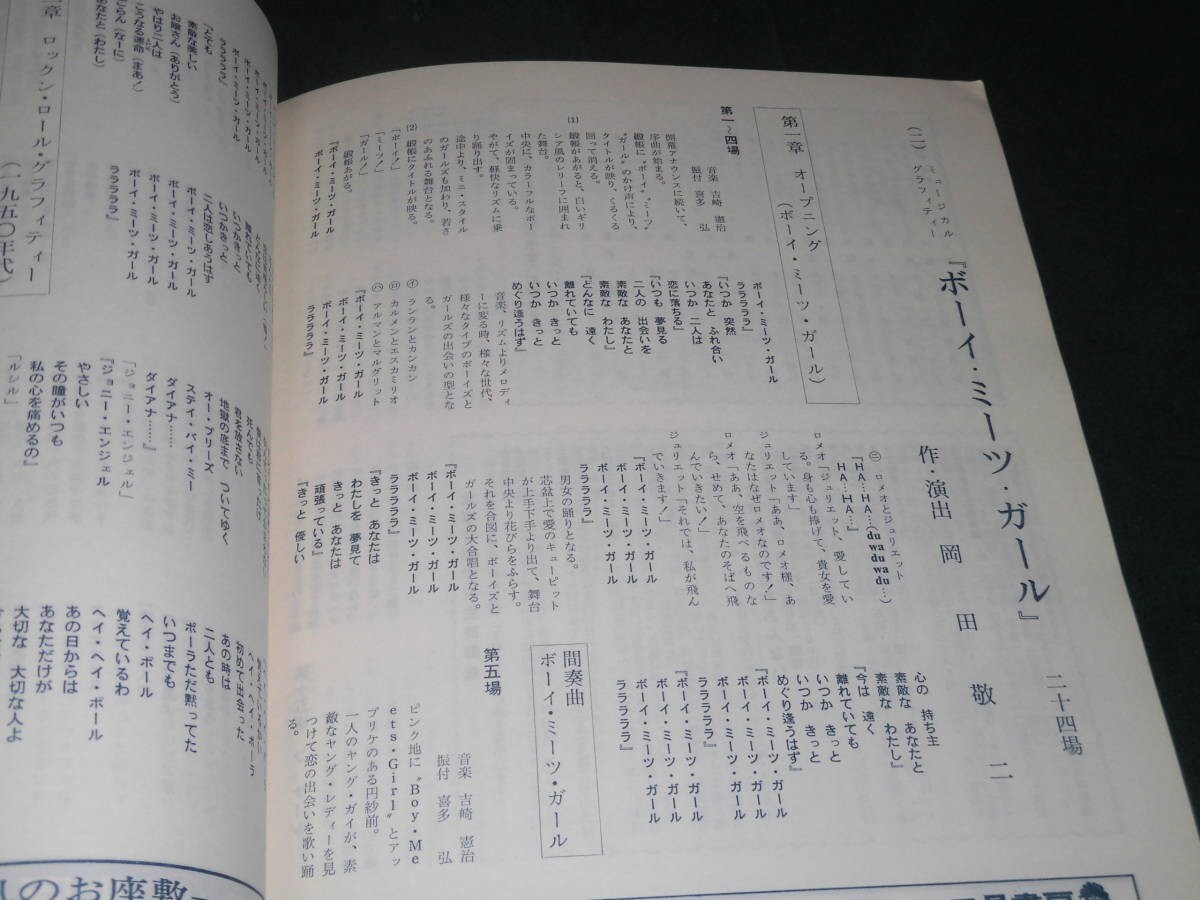 (二) ミュージカル グラフィティー
『ボーイ・ミーツ・ガール』
二十四場
作・演出 岡田敬二
第一章 オープニング
(ボーイ・ミーツ・ガール)
第一~四場
音楽 吉崎 憲治
振付 喜多 弘
(1)
開幕アナウンスに続いて、
序曲が始まる。
緞帳に“ボーイ”“ミーツ”
“ガール”のかけ声により、
タイトルが映り、くるくる
回って消える。
緞帳があがると、白いギリ
シア風のレリーフに囲まれ
た舞台。
中央に、カラーフルなボー
イズが固まっている。
やがて、軽快なリズムに乗
り踊り出す。
途中より、ミニ・スタイル
のガールズも加わり、若さ
のあふれる舞台となる。
(2) 緞帳にタイトルが映る。
「ボーイ!」
「ミーツ!」
「ガール!」
緞帳あがる。
『ボーイ・ミーツ・ガール
ボーイ・ミーツ・ガール
ボーイ・ミーツ・ガール
ラララララ』
『いつか 突然
あなたと ふれ合い
いつか 二人は
恋に落ちる』
『いつも 夢見る
二人の 出会いを
素敵な あなたと
素敵な わたし』
『どんなに 遠く
離れていても
いつか きっと
めぐり逢うはず』
音楽、リズムよりメロディ
ーに変る時、様々な世代、
様々なタイプのボーイズと
ガールズの出会いの型とな
る。
㋑ ランランとカンカン
㋺ カルメンとエスカミリオ
㋩ アルマンとマルグリット
『ボーイ・ミーツ・ガール
ボーイ・ミーツ・ガール
ボーイ・ミーツ・ガール
ラララララ』
㊂ ロメオとジュリエット
『HA…HA…(du wa du wa du…)
HA…HA…』
ロメオ「ジュリエット、愛してい
る。身も心も捧げて、貴女を愛
しています」
ジュリエット「ああ、ロメオ様、あ
なたはなぜロメオなのです!」
ロメオ「ああ、空を飛べるものな
ら、せめて、あなたのそばへ飛
んでいきたい!」
ジュリエット「それでは、私が飛ん
でいきます!」
『ボーイ・ミーツ・ガール
ボーイ・ミーツ・ガール
ボーイ・ミーツ・ガール
ラララララ』
男女の踊りとなる。
芯盆上で愛のキューピット
が上手下手より出て、舞台
中央より花びらをふらす。
それを合図に、ボーイズと
ガールズの大合唱となる。
『ボーイ・ミーツ・ガール
ボーイ・ミーツ・ガール
ボーイ・ミーツ・ガール
ラララララ』
『きっと あなたは
わたしを 夢見て
きっと あなたは
頑張っている』
『きっと 優しい
心の 持ち主
素敵な あなたと
素敵な わたし』
『今は 遠く
離れていても
いつか きっと
いつか きっと
めぐり逢うはず』
『ボーイ・ミーツ・ガール
ボーイ・ミーツ・ガール
ボーイ・ミーツ・ガール
ラララララ
『ボーイ・ミーツ・ガール
ボーイ・ミーツ・ガール
ボーイ・ミーツ・ガール
ラララララ』
間奏曲
ボーイ・ミーツ・ガール
第五場
音楽 吉崎 憲治
振付 喜多 弘
ピンク地に“Boy・Me
ets・Girl”とアッ
プリケのある円紗前。
一人のヤング・ガイが、素
敵なヤング・レディーを見
つけて恋の出会いを歌い踊
る。
ボーイ・ミーツ・ガール
ボーイ・ミーツ・ガール
ラララララ』
『とても
素敵な美しい
お嬢さん(ありがとう)
やはり二人は
こうなる運命(まあ!)
ごらん(なーに)
あなたと(わたし)
離れていても
いつかきっと
いつかきっと
二人は恋しあうはず
ボーイ・ミーツ・ガール
ボーイ・ミーツ・ガール
ボーイ・ミーツ・ガール
ラララララ』
章 ロックン・ロール・グラフィティー
(一九五〇年代)
死んでも
君を放さない
地獄の底まで ついてゆく
オー・プリーズ
ステイ・バイ・ミー
ダイアナ……
ダイアナ……』
「ジョニー・エンジェル」
『ジョニー・エンジェル
やさしい
その瞳がいつも
私の心を痛めるの』
「ルシル」
ヘイ・ヘイ・ポーラ
初めて出会った
あの時は
二人とも
ポーラただ黙ってた
いつまでも
ヘイ・ポール
覚えているわ
ヘイ・ヘイ・ポール
あの日からは
あなただけが
大切な 大切な人よ
のお座敷